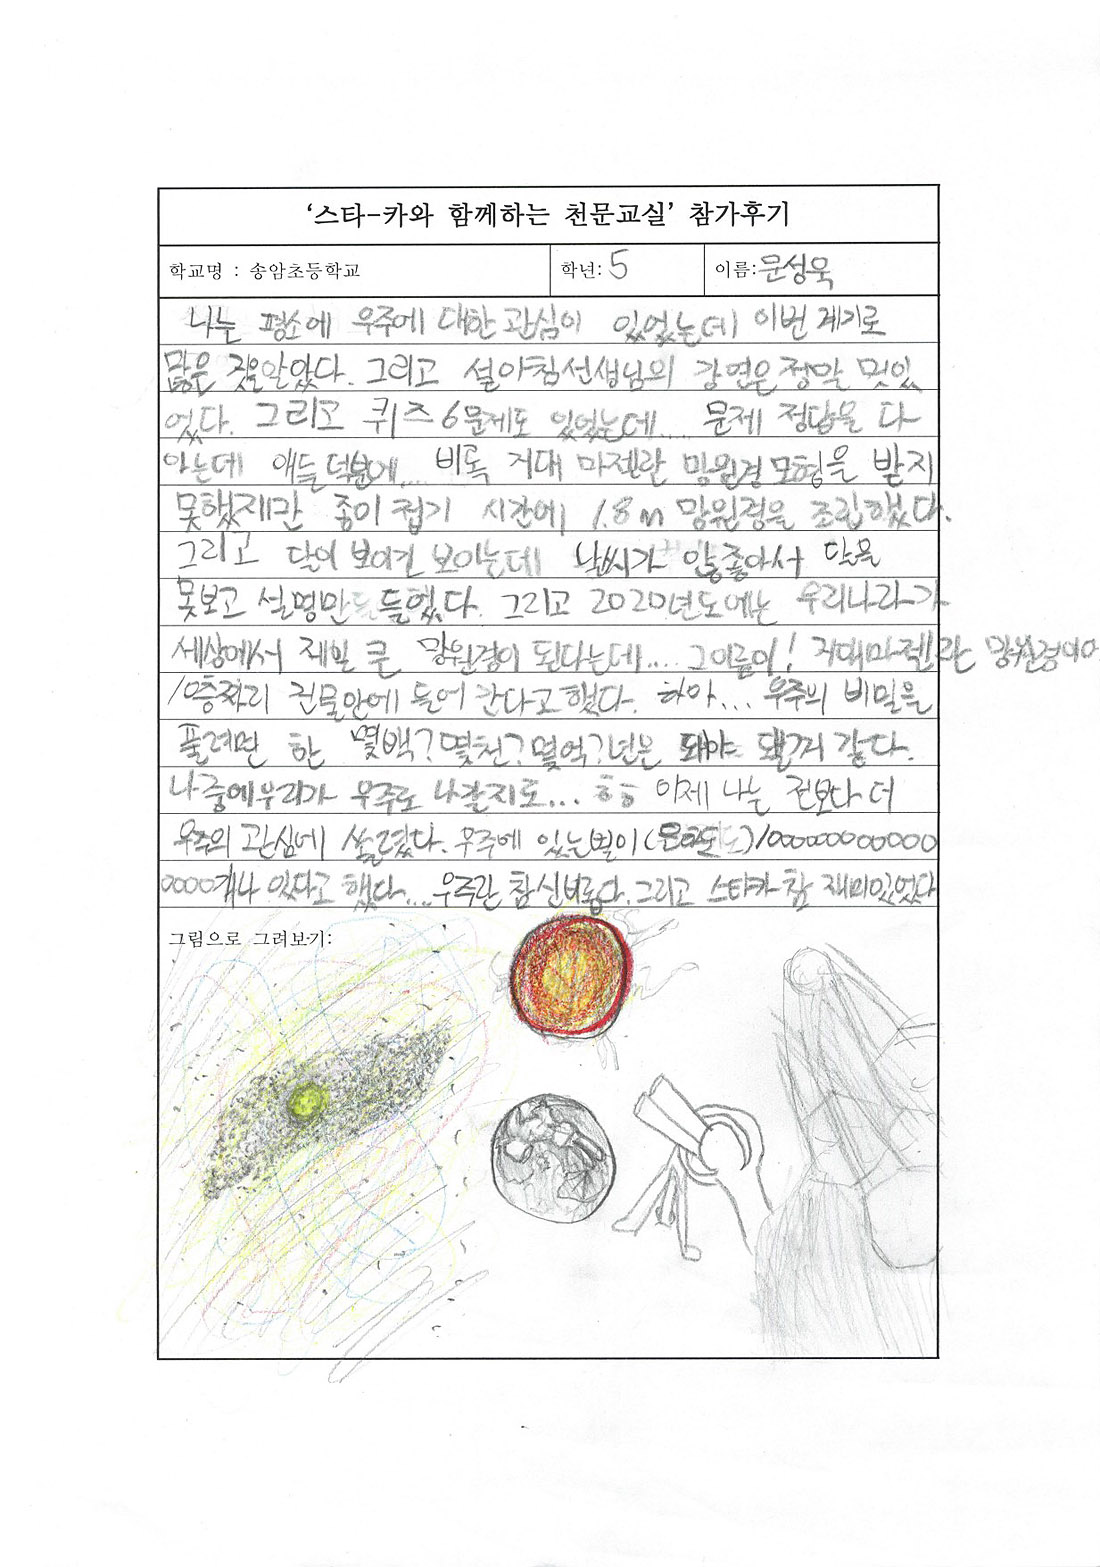 ‘스타-카와 함께하는 천문교실’ 참가후기
학교명 : 송암초등학교 학년: 5 이름: 문성욱
나는 평소에 우주에 대한 관심이 있었는데 이번 계기로
많은 것을 알았다. 그리고 설아침선생님의 강연은 정말 멋있
었다. 그리고 퀴즈 6문제도 있었는데..... 문제 정답을 다
아는데 애들 덕분에.... 비록 거대 마젤란 망원경 모형을 받지
못했지만 종이 접기 시간에 1.8m 망원경을 조립했다.
그리고 달이 보이긴 보이는데 날씨가 안좋아서 달을
못보고 설명만 들었다. 그리고 2020년도에는 우리나라가
세상에서 제일 큰 망원경이 된다는데.... 그이름이! 거대마젤란 망원경이야
10층짜리 건물안에 들어 간다고 했다. 하아... 우주의 비밀을
풀려면 한 몇백? 몇천? 몇억? 년은 돼야 될꺼 같다.
나중에 우리가 우주로 나갈지도... ㅎㅎ 이제 나는 전보다 더
우주의 관심에 쏠렸다. 우주에 있는 별이 1000000000000
0000개나 있다고 했다.... 우주란 참 신비롭다. 그리고 스타카 참 재미있었다
그림으로 그려보기: